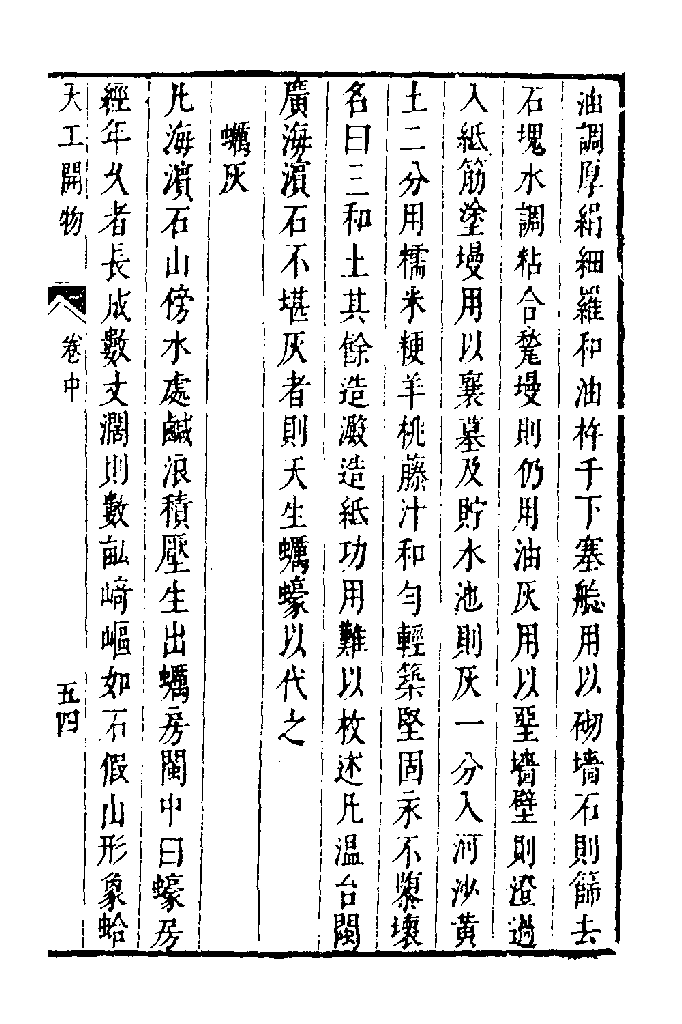 油調厚絹細羅和油杵千下塞艌用以砌墻石則篩去
石塊水調粘合甃墁則仍用油灰用以堊墻壁則澄過
入紙筋塗墁用以襄墓及貯水池則灰一分入河沙黃
土二分用糯米粳羊桃藤汁和勻輕築堅固永不隳壞
名曰三和土其餘造澱造紙功用難以枚述凡溫台閩
廣海濵石不堪灰者則天生蠣蠔以代之
蠣灰
凡海濵石山傍水處鹹浪積壓生出蠣房閩中曰蠔房
經年久者長成數丈濶則數畝崎嶇如石假山形象蛤
天工開物 卷中 五四